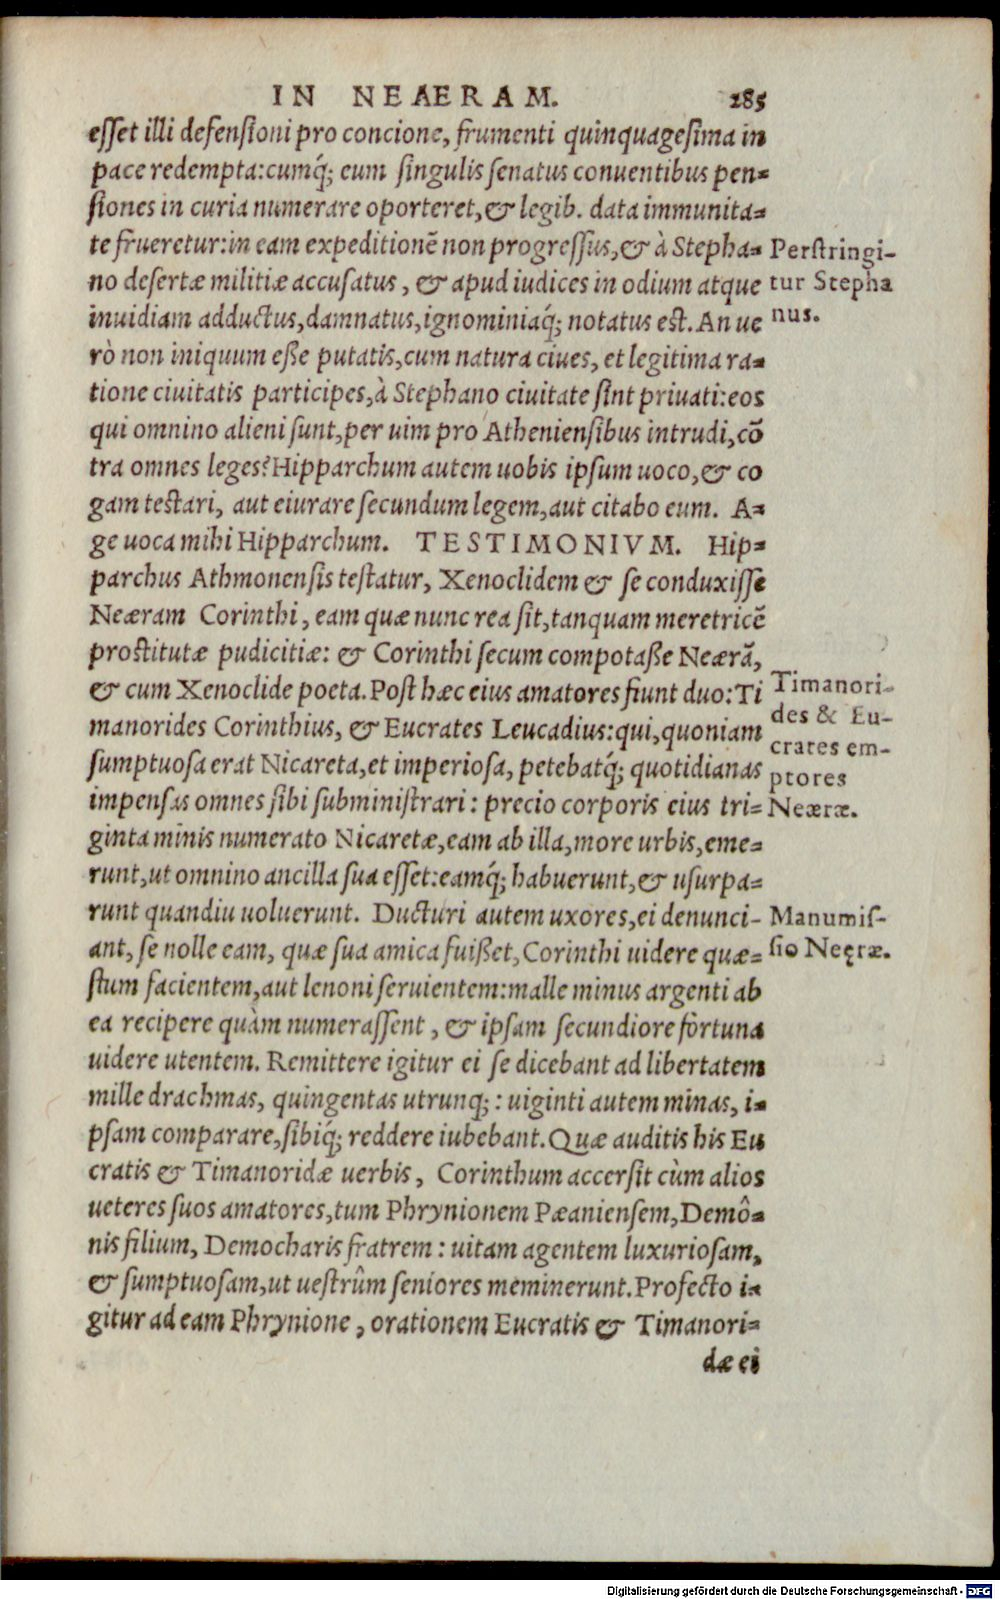 IN NEAERAM. 285
esset illi defensioni pro concione, frumenti quinquagesima in
pace redempta: cumq́; eum singulis senatus conuentibus pen=
siones in curia numerare oporteret, & legib. data immunita=
te frueretur: in eam expeditionē non progressus, & à Stepha=
no desertæ militiæ accusatus, & apud iudices in odium atque
inuidiam adductus, damnatus, ignominiaq́; notatus est. An ue
rò non iniquum eße putatis, cum natura ciues, et legitima ra=
tione ciuitatis participes, à Stephano ciuitate sint priuati: eos
qui omnino alieni sunt, per uim pro Atheniensibus intrudi, cō
tra omnes leges? Hipparchum autem uobis ipsum uoco, & co
gam testari, aut eiurare secundum legem, aut citabo eum. A=
ge uoca mihi Hipparchum. TESTIMONIVM. Hip=
parchus Athmonensis testatur, Xenoclidem & se conduxisse
Neæram Corinthi, eam quæ nunc rea sit, tanquam meretricē
prostitutæ pudicitiæ: & Corinthi secum compotaße Neærā,
& cum Xenoclide poeta. Post hæc eius amatores fiunt duo: Ti
manorides Corinthius, & Eucrates Leucadius: qui, quoniam
sumptuosa erat Nicareta, et imperiosa, petebatq́; quotidianas
impensas omnes sibi subministrari: precio corporis eius tri=
ginta minis numerato Nicaretæ, eam ab illa, more urbis, eme=
runt, ut omnino ancilla sua esset: eamq́; habuerunt, & usurpa=
runt quandiu uoluerunt. Ducturi autem uxores, ei denunci-
ant, se nolle eam, quæ sua amica fuißet, Corinthi uidere quæ=
stum facientem, aut lenoni seruientem: malle minus argenti ab
ea recipere quàm numerassent, & ipsam secundiore fortuna
uidere utentem. Remittere igitur ei se dicebant ad libertatem
mille drachmas, quingentas utrunq;: uiginti autem minas, i=
psam comparare, sibiq́; reddere iubebant. Quæ auditis his Eu
cratis & Timanoridæ uerbis, Corinthum accersit cùm alios
ueteres suos amatores, tum Phrynionem Pæaniensem, Demô=
nis filium, Democharis fratrem: uitam agentem luxuriosam,
& sumptuosam, ut uestrûm seniores meminerunt. Profecto i=
gitur ad eam Phrynione, orationem Eucratis & Timanori=
dæ ei
Perstringi-
tur Stepha
nus.
Timanori-
des & Eu-
crates em-
ptores
Neæræ.
Manumis-
sio Neęræ.
Digitalisierung gefördert durch die Deutsche Forschungsgemeinschaft - DFG